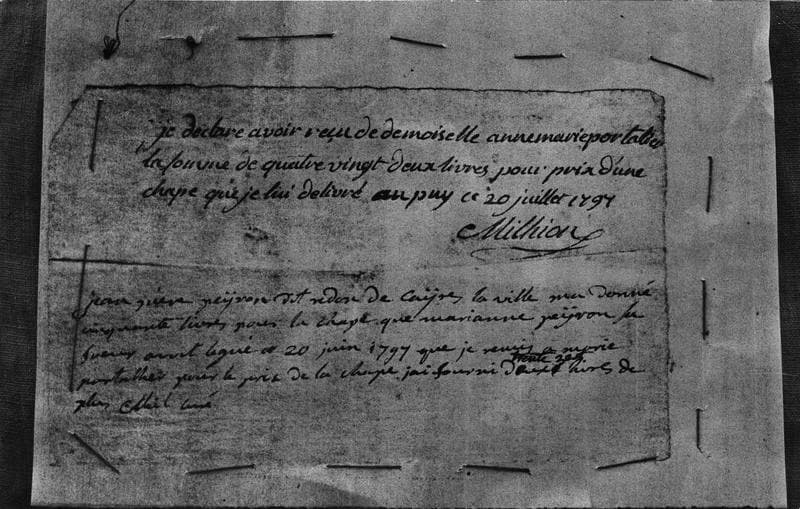 je declare avoir reçu de demoiselle annemarie portalier
la somme de quatre vingt deux livres pour prix d'une
chape que je lui delivré au puy ce 20 juillet 1797
Milhion
jean pierre peÿron dit redon de Caÿres la ville ma donné
cinquante livres pour la chape que marianne peÿron sa
sueur avoit legué et 20 juin 1797 que je remis a marie
portalher pour le prix de la chape jai fourni trente deux livres de
plus